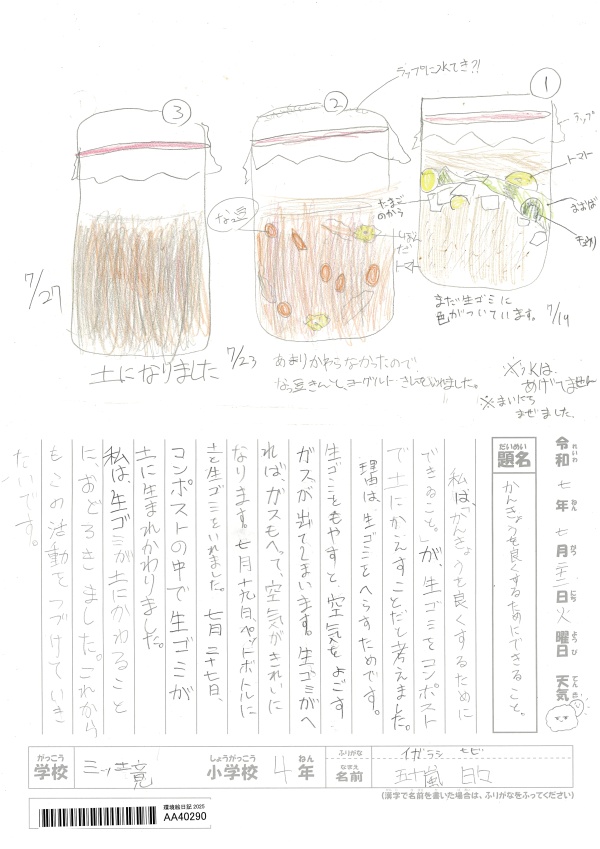 ラップに水てき?!
①
ラップ
トマト
まだ生ゴミに
色がついています。
7/19
②
たまご
のから
なっ豆
トマト
7/23
あまりかわらなかったので
なっ豆きんとヨーグルトきんをいれました。
③
7/27
土になりました
※水は
あげてません
※まいにち
まぜました。
令和七年七月二十二日火曜日 天気
れいわ ねん がつ にち ようび てんき
だいめい
題名
かんきょうを良くするためにできること。
私は「かんきょうを良くするために
できること。」が、生ゴミをコンポスト
で土にかえすことだと考えました。
理由は、生ゴミをへらすためです。
生ゴミをもやすと、空気をよごす
ガスが出てしまいます。生ゴミがへ
れば、ガスもへって、空気がきれいに
なります。七月十九日、ペットボトルに
土と生ゴミをいれました。七月二十七日、
コンポストの中で生ゴミが
土に生まれかわりました。
私は、生ゴミが土にかわること
に、おどろきました。これから
もこの活動をつづけていき
たいです。
がっこう
学校
三ツ境
しょうがっこう
小学校
4
ねん
年
ふりがな
イガラシ
なまえ
名前
五十嵐
(漢字で名前を書いた場合は、ふりがなをふってください)
環境絵日記 2025
AA40290